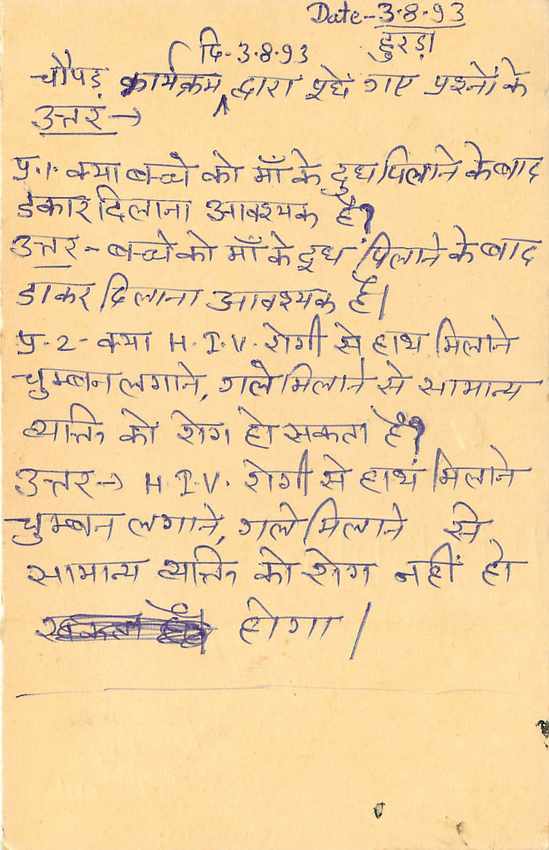 Date-3·8·93
हुरड़ा
दि-3·8·93
चौपड़ कार्यक्रम द्वारा पूछे गए प्रश्नों के
उत्तर →
प्र.1. क्या बच्चे को माँ के दुध पिलाने के बाद
डकार दिलाना आवश्यक है?
उत्तर - बच्चे को माँ के दूध पिलाने के बाद
डाकर दिलाना आवश्यक है।
प्र-2- क्या H.I.V. रोगी से हाथ मिलाने
चुम्बन लगाने, गले मिलाने से सामान्य
व्यक्ति को रोग हो सकता है?
उत्तर → H.I.V. रोगी से हाथ मिलाने
चुम्बन लगाने, गले मिलाने से
सामान्य व्यक्ति को रोग नहीं हो
होगा।